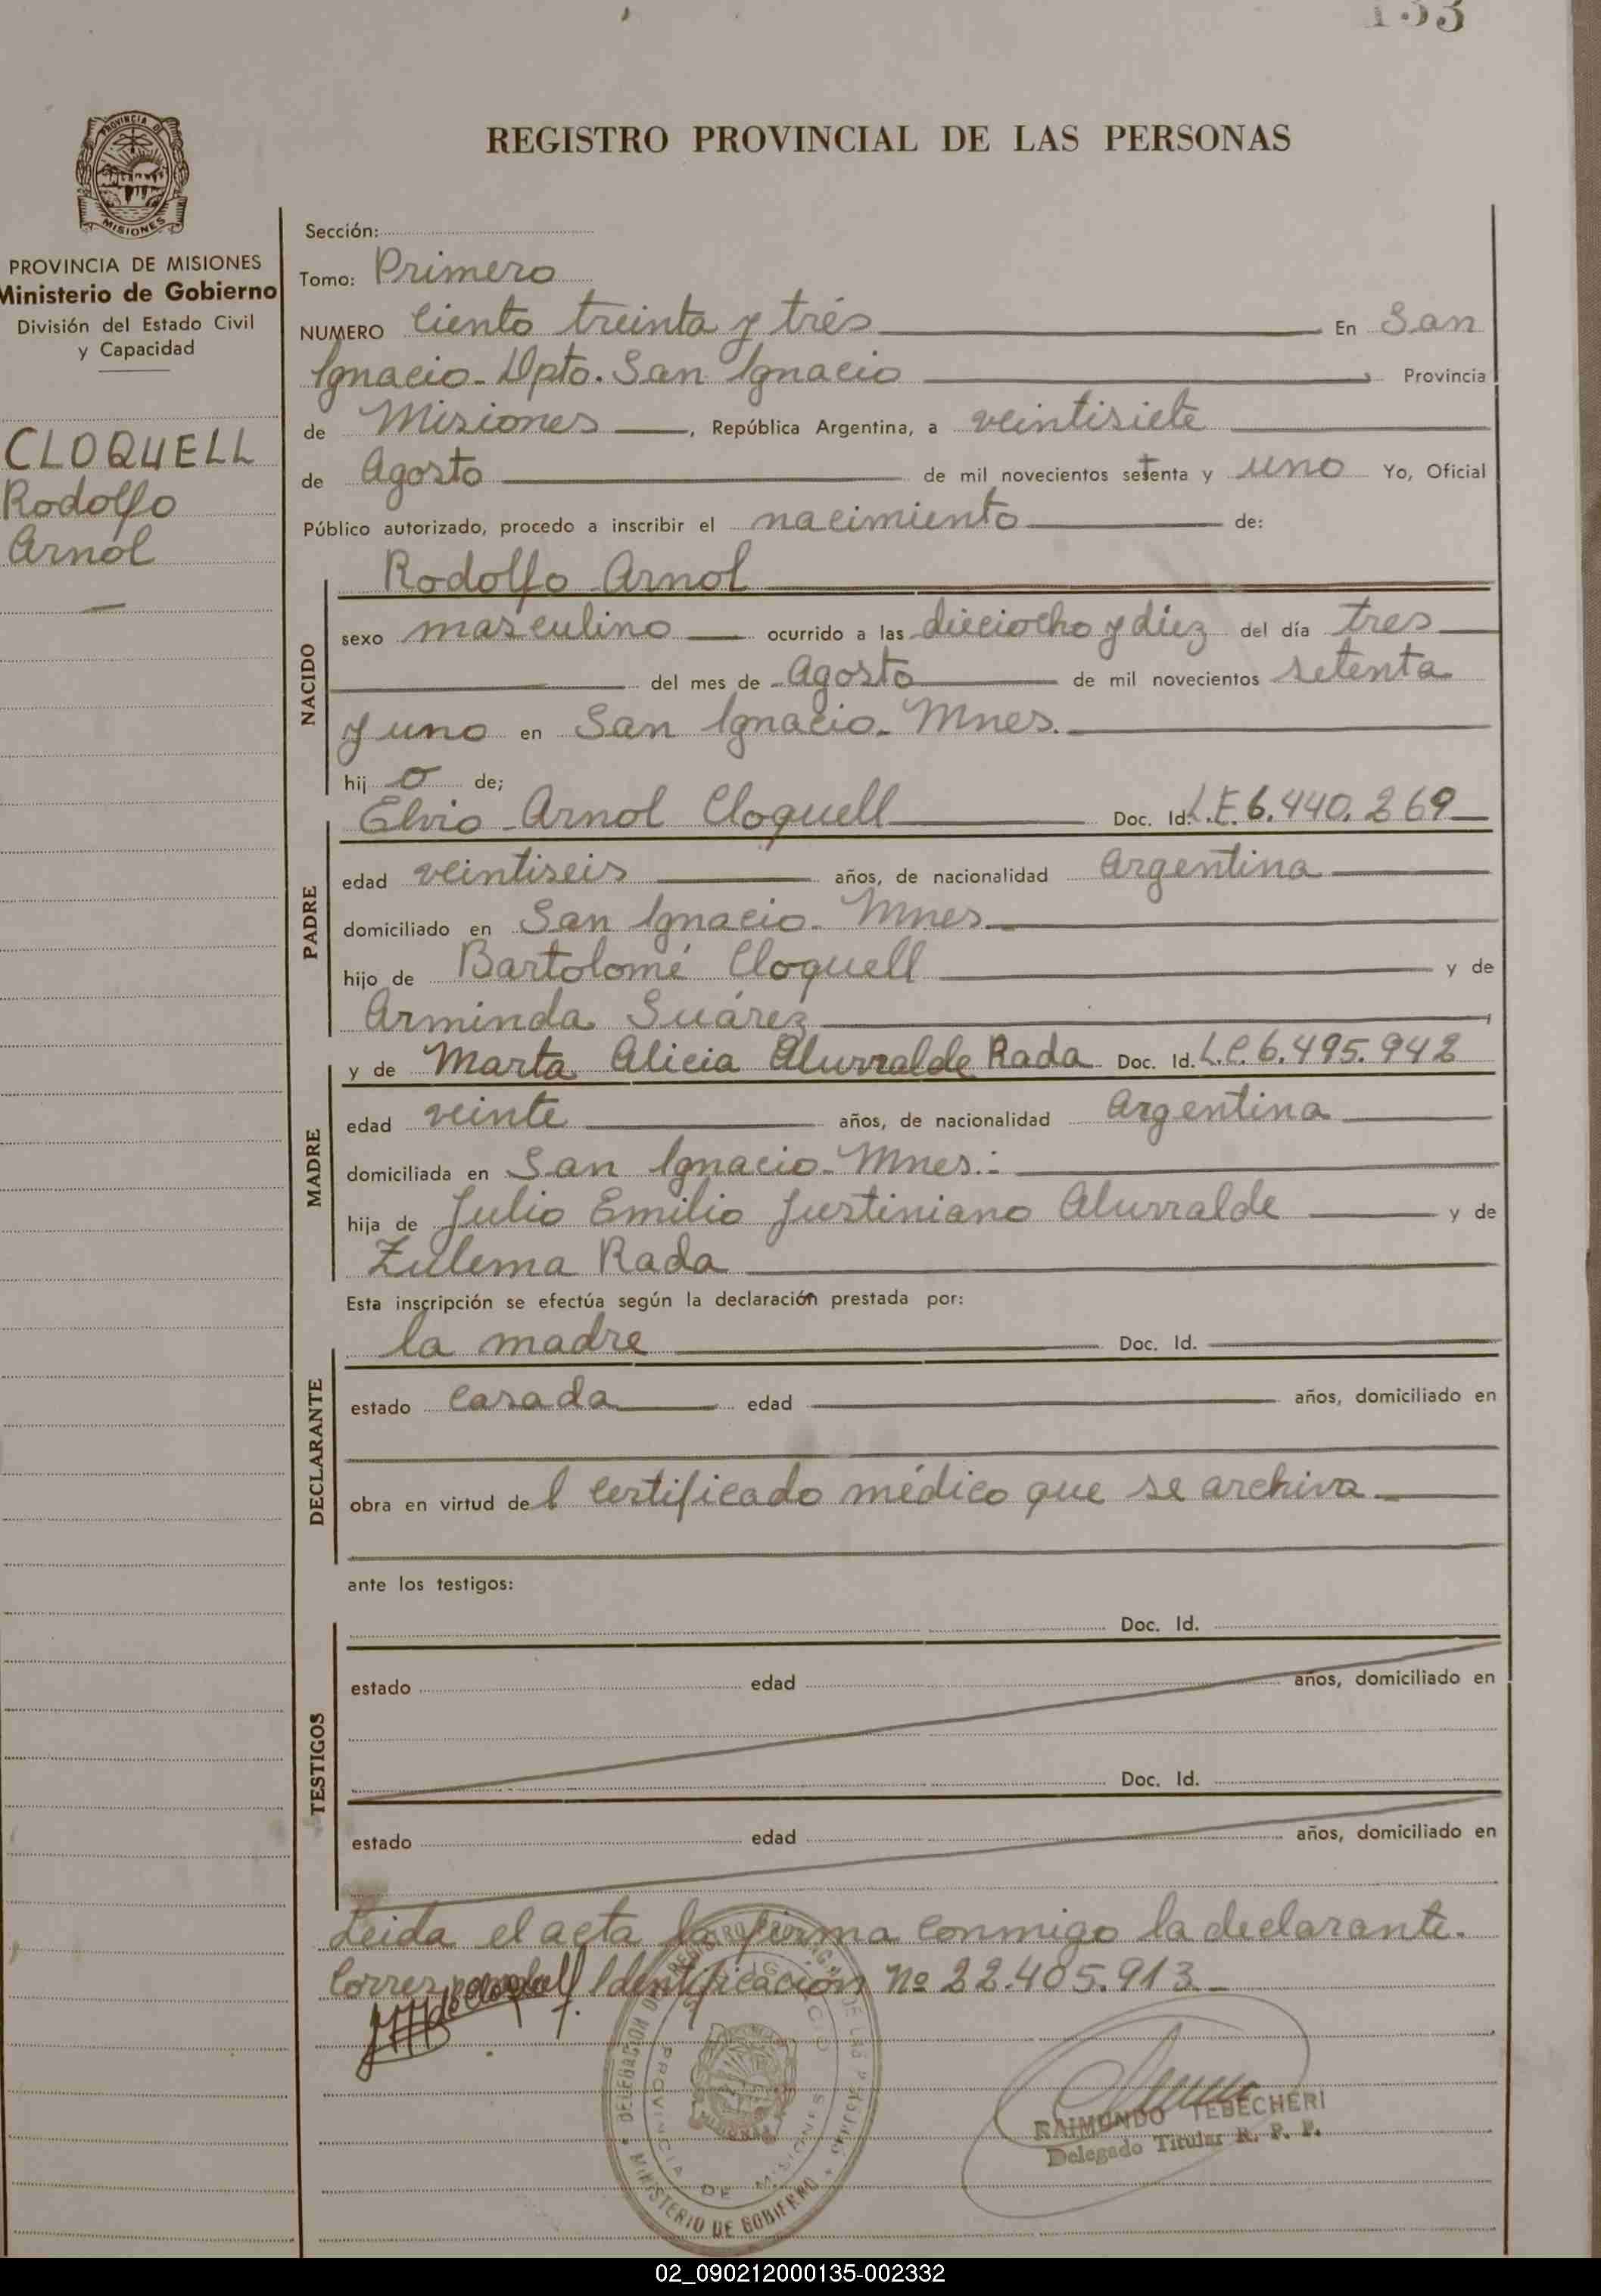 133
REGISTRO PROVINCIAL DE LAS PERSONAS
PROVINCIA DE MISIONES
PROVINCIA DE MISIONES
Ministerio de Gobierno
División del Estado Civil
y Capacidad
CLOQUELL
Rodolfo
Arnol
Sección:
Tomo: Primero
NUMERO Ciento treinta y trés En San
Ignacio - Dpto. San Ignacio Provincia
de Misiones, República Argentina, a veintisiete
de Agosto de mil novecientos setenta y uno Yo, Oficial
Público autorizado, procedo a inscribir el nacimiento de:
NACIDO
Rodolfo Arnol
sexo masculino ocurrido a las dieciocho y diez del día tres
del mes de Agosto de mil novecientos setenta
y uno en San Ignacio - Mnes.
hij o de;
PADRE
Elvio Arnol Cloquell Doc. Id. L.E. 6.440.269
edad veintiseis años, de nacionalidad Argentina
domiciliado en San Ignacio - Mnes
hijo de Bartolomé Cloquell y de
Arminda Suárez
MADRE
y de Marta Alicia Alurralde Rada Doc. Id. L.C. 6.495.942
edad veinte años, de nacionalidad Argentina
domiciliada en San Ignacio - Mnes.-
hija de Julio Emilio Justiniano Alurralde y de
Zulema Rada
Esta inscripción se efectúa según la declaración prestada por:
DECLARANTE
la madre Doc. Id.
estado Casada edad años, domiciliado en
obra en virtud del certificado médico que se archiva.-
ante los testigos:
TESTIGOS
Doc. Id.
estado edad años, domiciliado en
Doc. Id.
estado edad años, domiciliado en
Leida el acta la firma conmigo la declarante.
Corresponde Identificación Nº 22.405.913.-
de Cloquell
DELEGACION DEL REGISTRO PROVINCIAL DE LAS PERSONAS
SAN IGNACIO
PROVINCIA DE MISIONES
MISIONES
MINISTERIO DE GOBIERNO
RAIMUNDO TEBECHERI
Delegado Titular R. P. P.
02_090212000135-002332